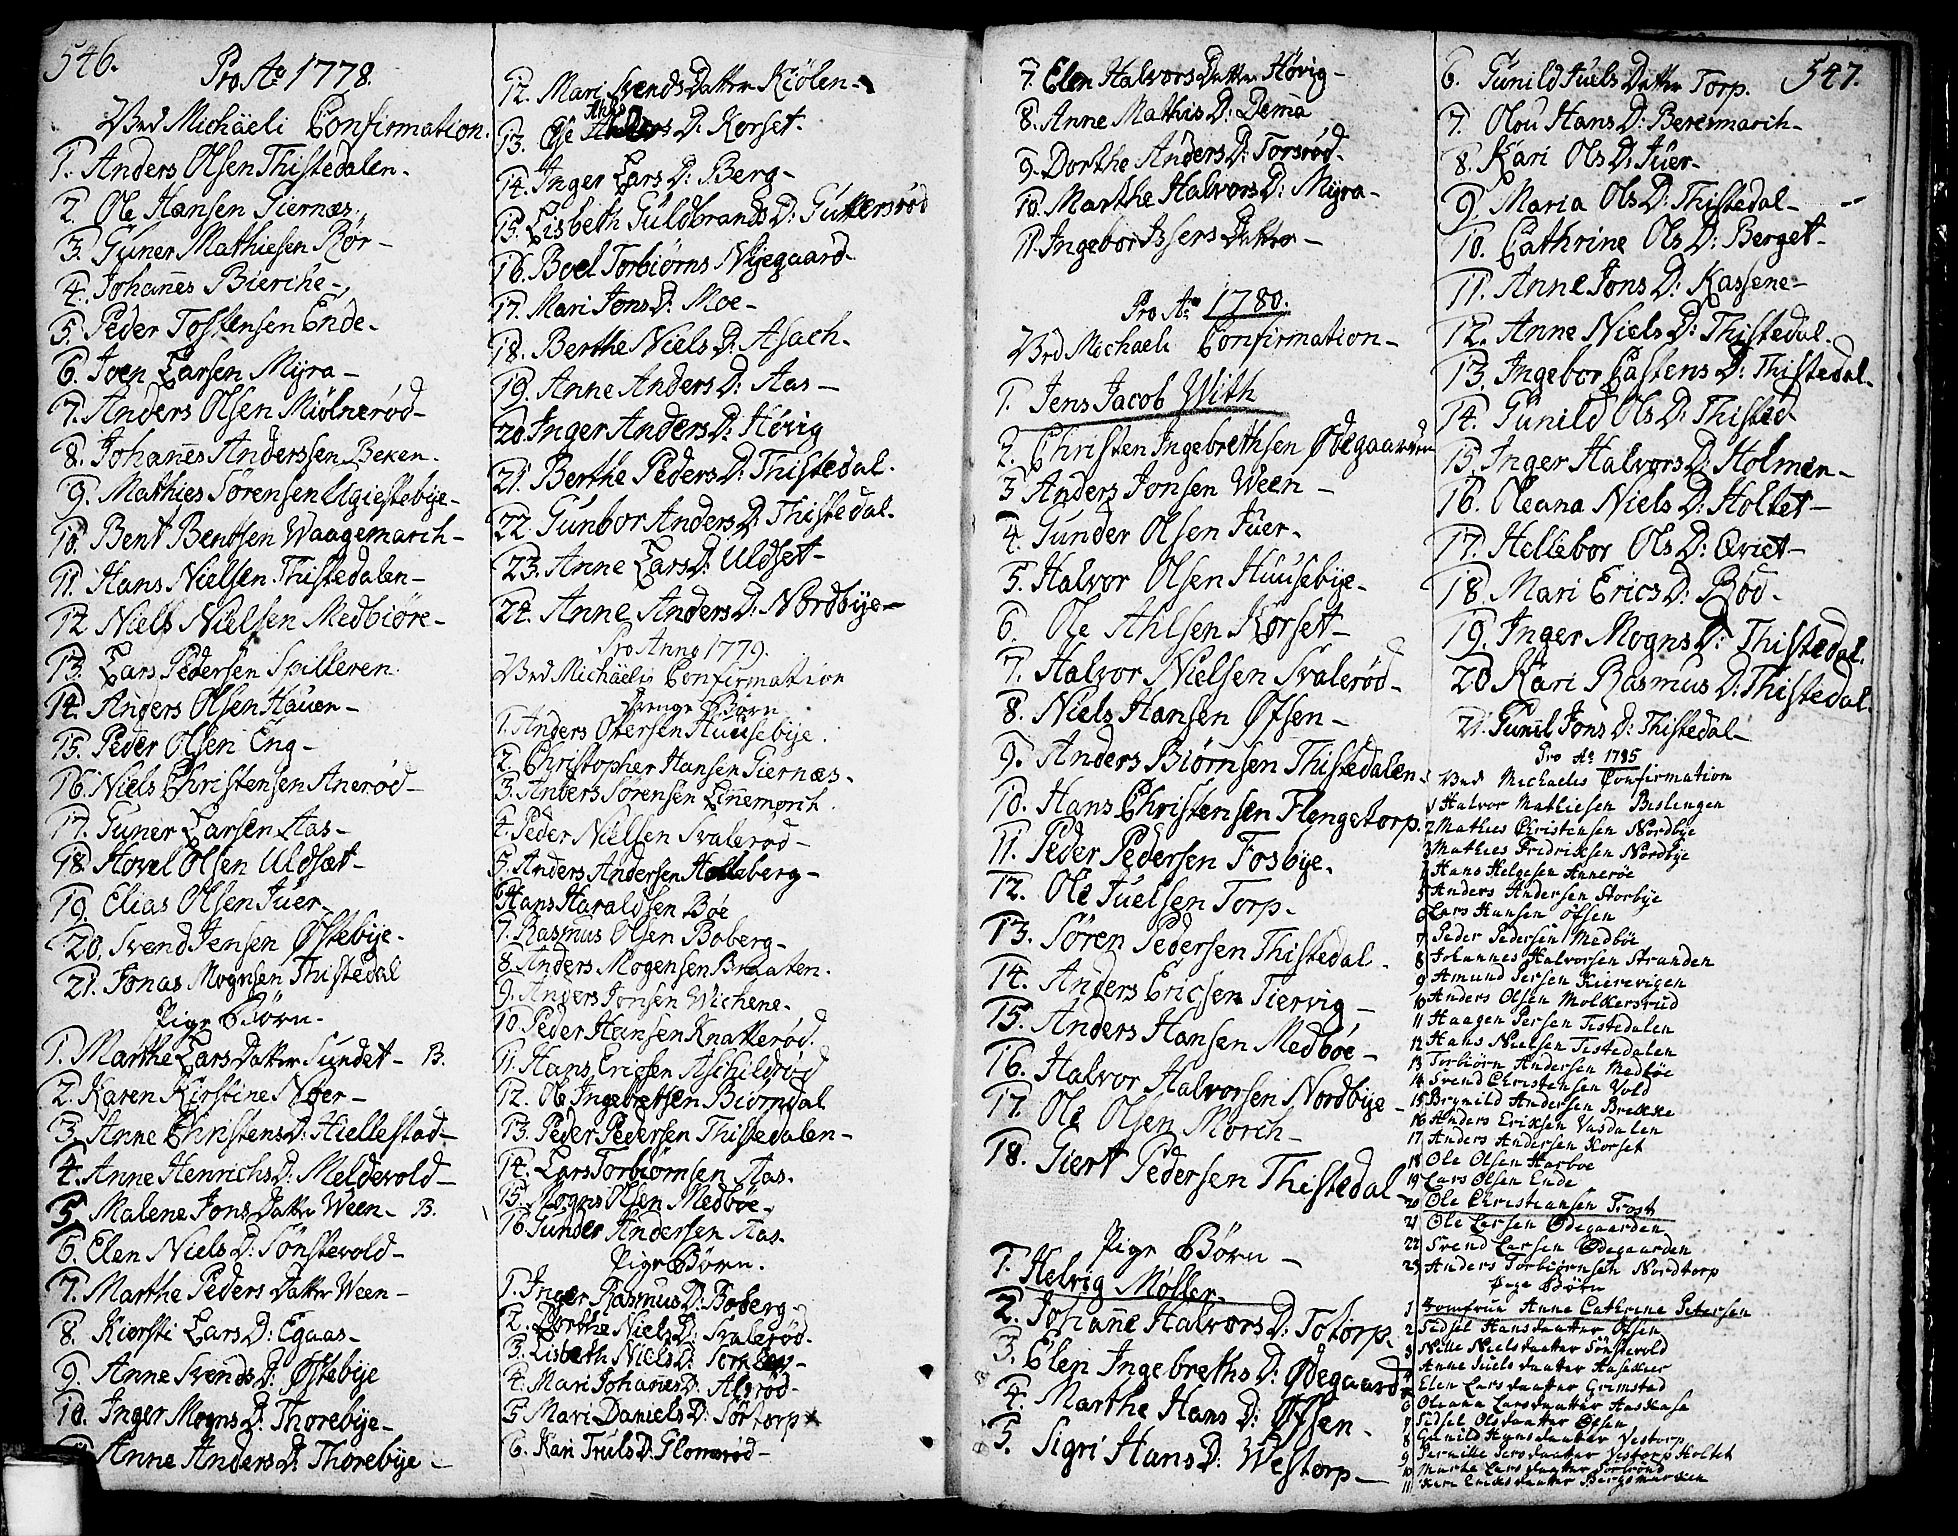 546.
Pro Ao 1778.
Ved Michäeli Confirmation.
1. Anders Olsen Thistedalen.
2. Ole Hansen Giernæs.
3. Guner Mathiesen Rør-
4. Johañes Bierche-
5. Peder Tostensen Ende-
6. Joen Larsen Myra-
7. Anders Olsen Miølnerød-
8. Johañes Anderssen Beken.
9. Mathies Sørensen Ugiestebye-
10. Bent Bentsen Waagemarch-
11. Hans Nielsen Thistedalen-
12. Niels Nielsen Medbiøre-
13. Lars Pedersen Spilleren.
14. Anders Olsen Hauen-
15. Peder Olsen Eng-
16. Niels Christensen Anerød-
17. Guner Larsen Aas-
18. Hovel Olsen Uldsæt-
19. Elias Olsen Juer-
20. Svend Jensen Østebye-
21. Jonas Mognsen Thistedal
Pige Børn.
1. Marthe Lars Datter Sundet- B.
2. Karen Kirstine Noer-
3. Anne Christens D: Hiellestad-
4. Anne Henrichs D: Meldevold-
5. Malene Jons Datter Ween- B.
6. Elen Niels D: Sønstevold-
7. Marthe Peders Datter Ween-
8. Kiersti Lars D: Egaas-
9. Anne Svends D: Østebye
10. Inger Mogns D: Thorebye-
Anne Anders D: Thorebye-
12. Mari Svends Datter Kiølen-
13. Ahls D: Korset.
14. Inger Lars D: Berg-
15. Lisbeth Guldbrands D: Guttersrød
16. Boel Torbiørns Nyegaard-
17. Mari Jons D: Moe-
18. Berthe Niels D: Asach-
19. Anne Anders D: Aas-
20. Inger Anders D: Høvig
21. Berthe Peders D: Thistedal.
22. Gunbor Anders D: Thistedal.
23. Anne Lars D: Uldset-
24. Anne Anders D: Nordbye-
Pro Anno 1779.
Ved Michäelis Confirmation
Drenge Børn
1. Anders Ollersen Huusebye.
2. Christopher Hansen Giernæs.
3. Anders Sørensen Linemorch.
4. Peder Nielsen Svalerød-
5. Anders Andersen Holleberg-
6. Hans Haraldsen Bøe
7. Rasmus Olsen Boberg-
8. Anders Mogensen Braaten.
9. Anders Jonsen Wichene-
10. Peder Hansen Knatterød.
11. Hans Ericsen Aschildrød
12. Ole Ingebretsen Biørndal
13. Peder Pedersen Thistedalen-
14. Lars Torbiørnsen Aas.
15. Mogns Olsen Medbøe-
16. Gunder Andersen Aas.
Pige Børn.
1. Inger Rasmus D: Boberg-
2. Dorthe Niels D: Svalerød-
3. Lisbeth Niels D:
4. Mari Johañes D: Alsrød-
5. Mari Daniels D: Sørtorp
6. Kari Truls D: Glomsrød-
7. Elen Halvors Datter Høvig-
8. Anne Mathis D: Dema
9. Dorthe Anders D: Torsrød.
10. Marthe Halvors D: Myra-
11. Ingebor Issers Datter-
Pro Ao 1780.
Ved Michaeli Confirmation-
1. Jens Jacob With
2. Christen Ingebrethsen Ødegaarden
3 Anders Jonsen Ween-
4. Gunder Olsen Juer-
5. Halvor Olsen Huusebye-
6. Ole Ahlsen Korset-
7. Halvor Nielsen Svalerød-
8. Niels Hansen Øfsen-
9. Anders Biørnsen Thistedalen
10. Hans Christensen Flengetorp.
11. Peder Pedersen Fosbye.
12. Ole Juelsen Torp.
13. Søren Pedersen Thistedal.
14. Anders Ericsen Tiervig-
15. Anders Hansen Medbøe-
16. Halvor Halvorsen Nordbye-
17. Ole Olsen Morch-
18. Giert Pedersen Thistedal
Pige Børn-
1. Helvig Møller-
2. Johañe Halvors D: Totorp.
3. Elen Ingebreths D: Ødegaard
4. Marthe Hans D: Øfsen.
5. Sigri Hans D: Westorp-
547.
6. Gunild Juels Datter Torp.
7. Olou Hans D: Beremarch-
8. Kari Ols D: Juer-
9. Maria Ols D: Thistedal-
10. Cathrine Ols D: Berget-
11. Anne Jons D: Kassene-
12. Anne Niels D: Thistedal.
13. Ingebor Castens D: Thistedal.
14. Gunild Ols D: Thisted
15. Inger Halvors D: Holmen-
16. Oleana Niels D: Holtet-
17. Hellebor Ols D: Qviet-
18. Mari Erics D: Bød-
19. Inger Mogns D: Thistedal.
20 Kari Rasmus D: Thistedal.
21. Gunil Jons D: Thistedal-
Pro Ao 1785
Ved Michaelis Confirmation
1 Halvor Mathiesen Bislingen
2 Mathies Christensen Nordbye
3 Mathies Fridriksen Nordbye
4 Hans Helgesen Annerøe
5 Anders Andersen Storbye
6 Lars Hansen Øfsen
7 Peder Pedersen Medbøe
8 Johannes Halvorsen Stranden
9 Amund Persen Kierevigen
10 Anders Olsen Molkersrud
11 Haagen Persen Tistedalen
12 Hans Nielsen Tistedalen
13 Torbiørn Andersen Medbøe
14 Svend Christensen Vold
15 Brynild Andersen Brekke
16 Anders Eriksen Vasdalen
17 Anders Andersen Korset
18 Ole Olsen Harboe
19 Lars Olsen Ende
20 Ole Christiansen Trost
21 Ole Larsen Ødegaarden
22 Svend Larsen Ødegaarden
23 Anders Torbiørnsen Nordtorp
Pige Børn
1 Jomfrue Anne Cathrine Petersen
2 Sidsel Hansdaatter Øfsen
3 Nille Nielsdaatter Sønstevold
4 Anne Juelsdaatter
5 Elen Larsdaatter Grimstad
6 Oleana Larsdaatter
7 Sidsel Olsdaatter Øfsen
8 Gunild Hansdaatter Vestorp
9 Pernille Persdaatter Vestorp Holtet
10 Marte Larsdaatter
11 Kari Eriksdaatter Bergsmarken